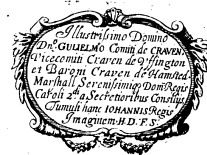 Illustrissimo Domino
Dnº GULIELMO Comiti de CRAVEN
Vicecomiti Craven de Vffington
et Baroni Craven de Hamsted
Marshall Serenissimo Dom Regis
Caroli 2di a Secretioribus Consilijs
Tumuli hanc IOHANNIS Regis
Imaginem·H·D·F·S·